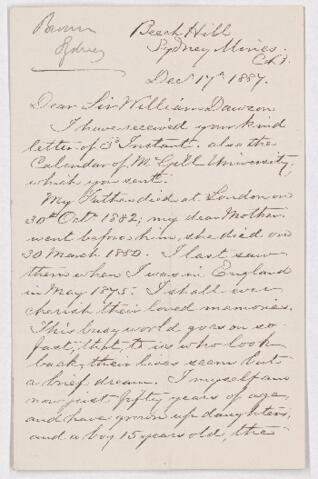 Brown
Sydney
Beech Hill
Sydney Mines.
C.B.
Dec 17th 1887.
Dear Sir William Dawson.
I have received your kind
letter of 3d Instant. also the
Calendar of McGill University,
which you sent.
My Father died at London on
30th Octr 1882; my dear Mother
went before him, she died on
30 March 1880. I last saw
them when I was in England
in May 1875. I shall ever
cherish their loved memories.
This busy world goes on so
fast; that, to us who look
back, their lives seem but
a brief dream. I myself am
now just fifty years of age,
and have grown up daughters,
and a boy 15 years old, the